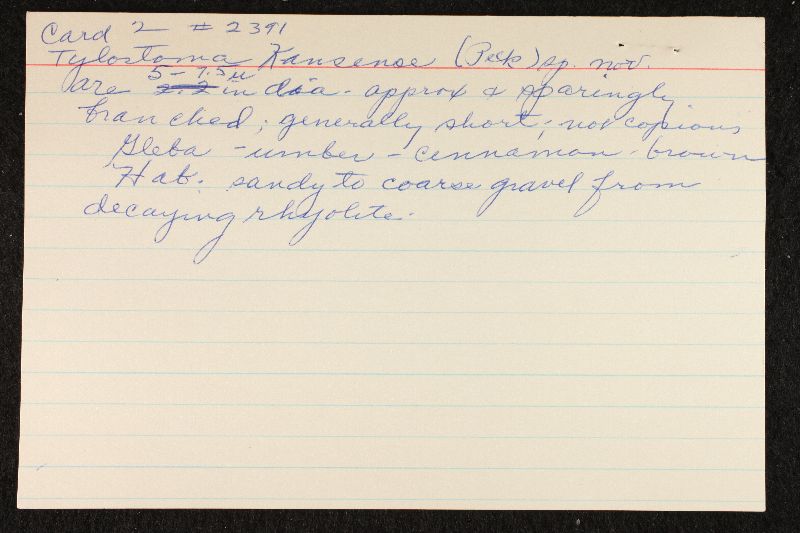 Card 2 # 2391
Tylostoma Kansense (Peck) sp. nov.
5-7.5 µ
are 2.2 in dia. approx & sparingly
branched; generally short; not copious
Gleba - umber - cinnamon-brown
Hab: sandy to coarse gravel from
decaying rhyolite.